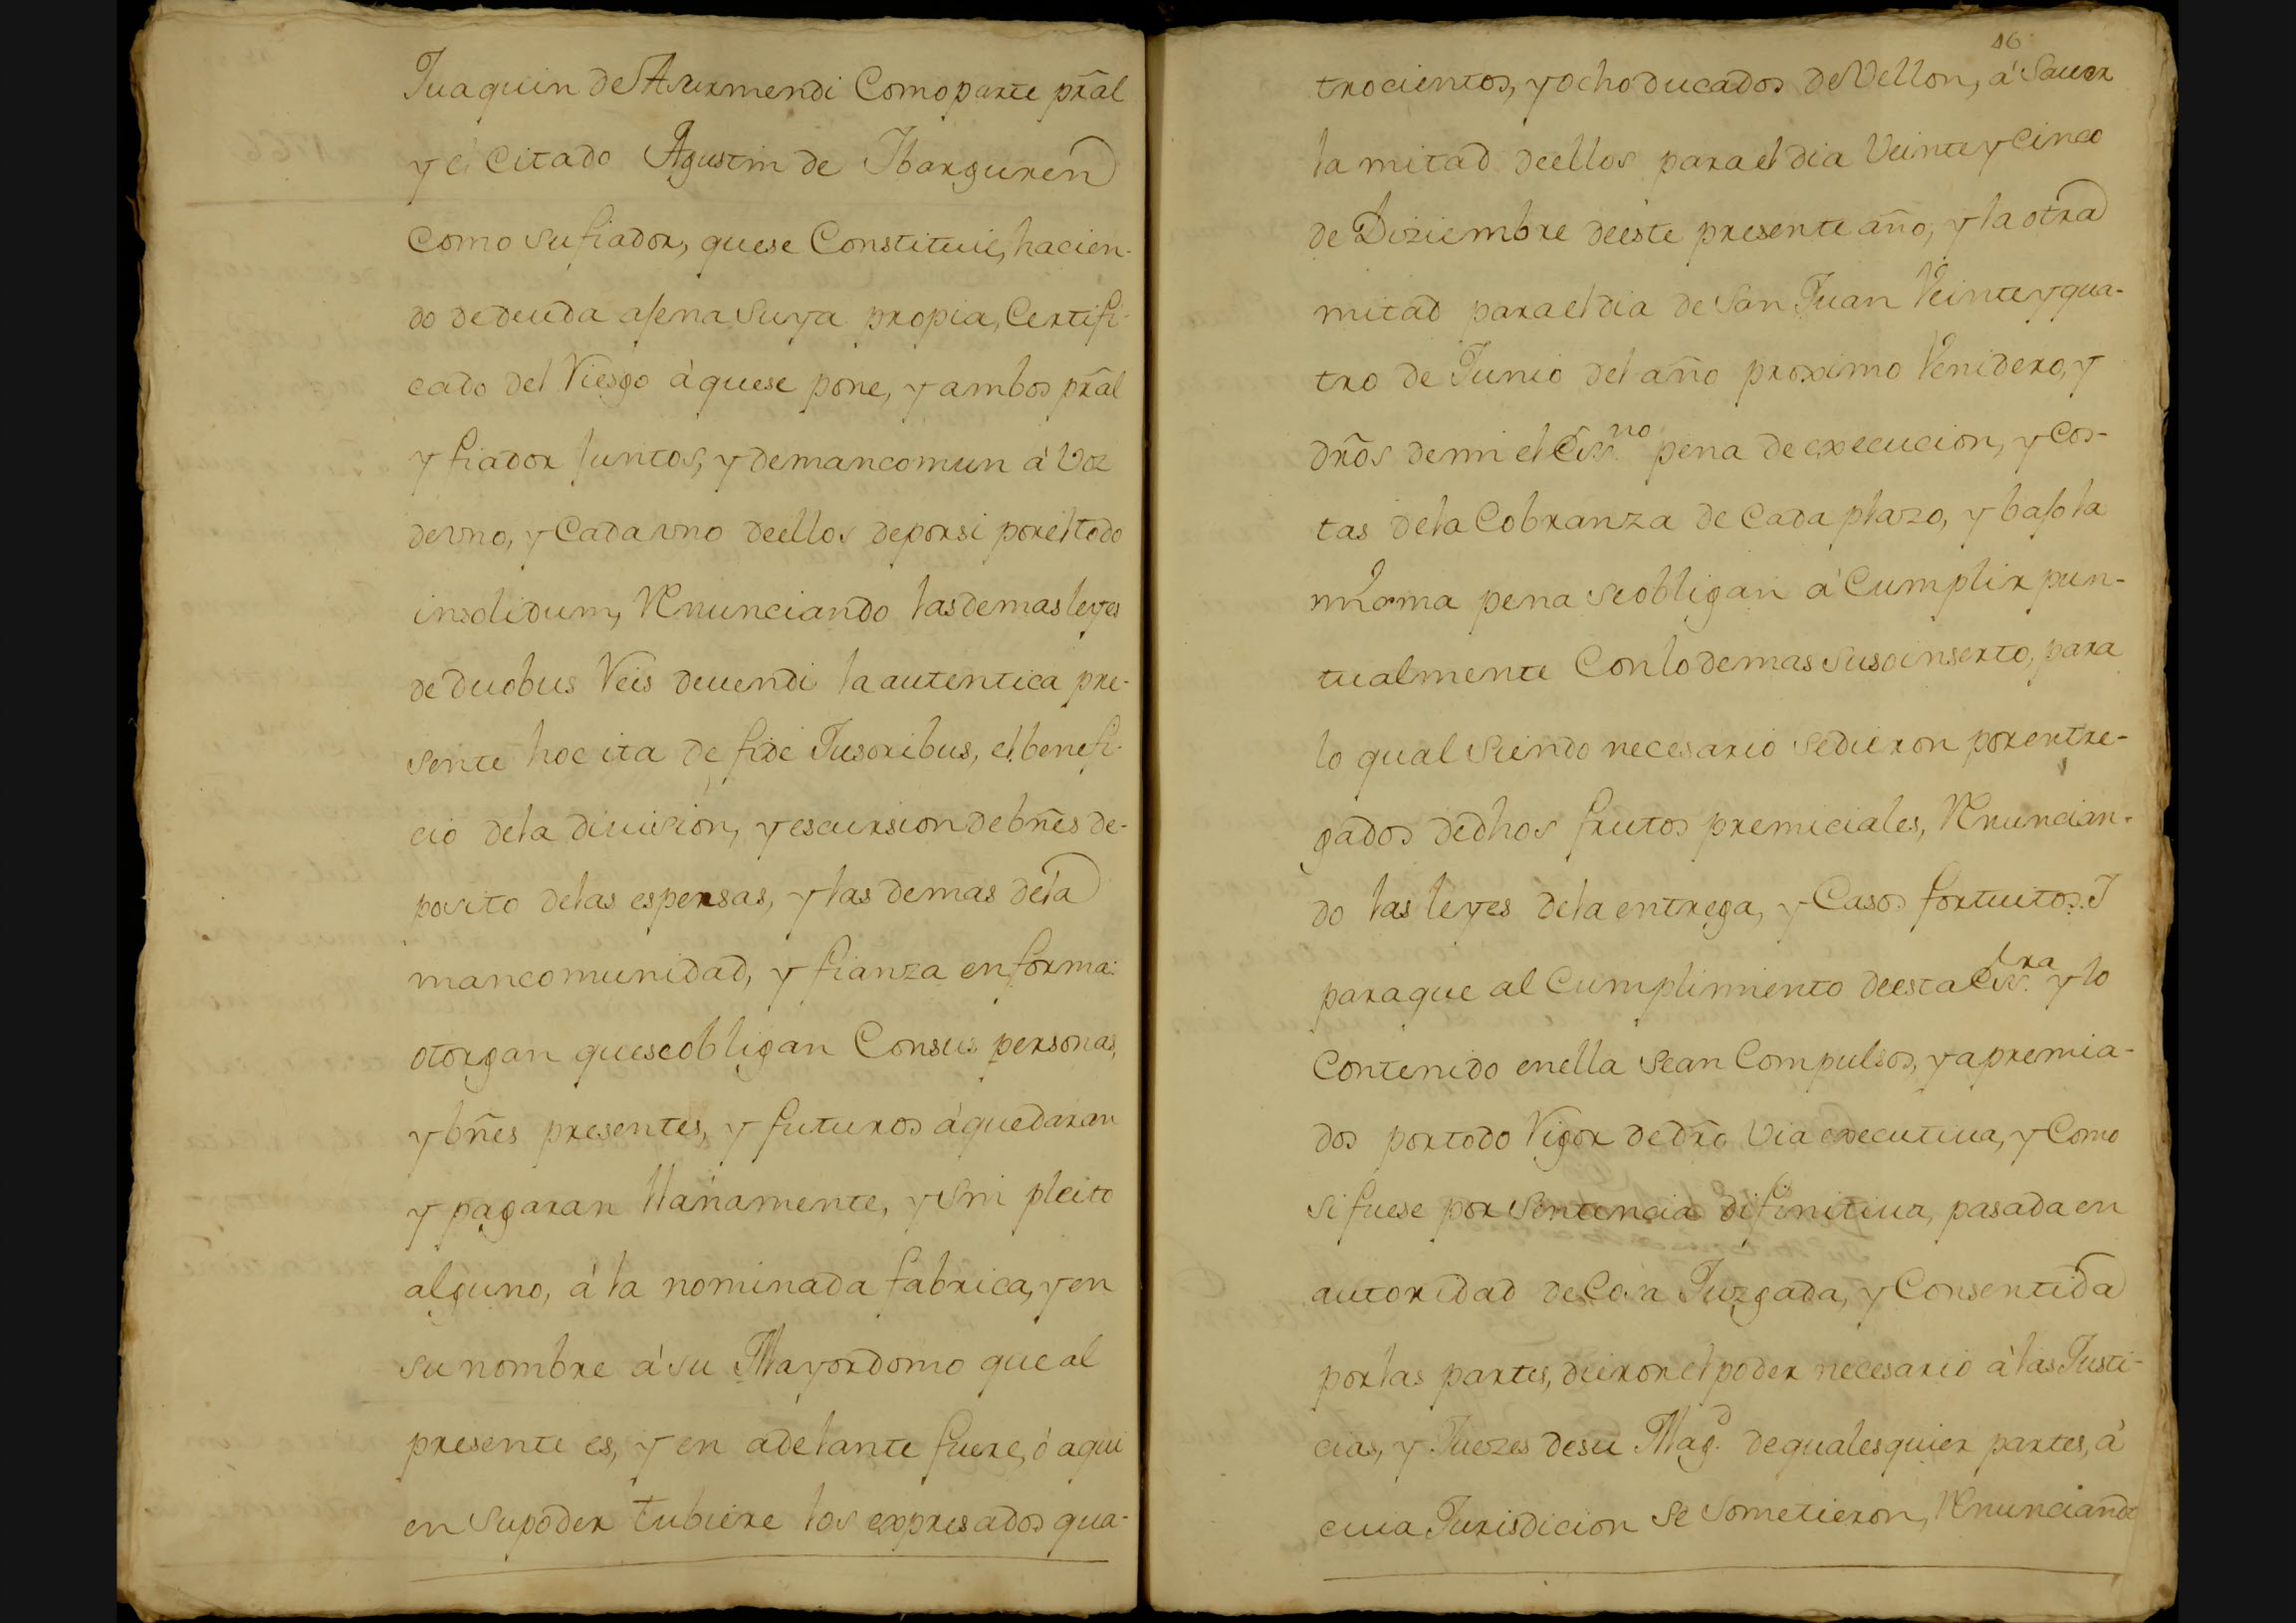 Juaquin de Asurmendi Como parte prãl
y el Citado Agustin de Ibarguren
Como su fiador, que se Constituie, hacien-
do de deuda ajena suya propia, Certifi-
cado del Riesgo à que se pone, y ambos prãl
y fiador Juntos, y de mancomun à voz
de vno, y Cada vno de ellos de por si por el todo
insolidum, Renunciando las demas leyes
de duobus Reis deuendi la autentica pre-
sente hoc ita de fide Jusoribus, el benefi-
cio de la diuision, y escursion de bñes de-
posito de las espensas, y las demas de la
mancomunidad, y fianza en forma:
otorgan que se obligan Con sus personas,
y bñes presentes, y futuros à que daran
y pagaran llanamente, y sin pleito
alguno, à la nominada fabrica, y en
su nombre à su Mayordomo que al
presente es, y en adelante fuere, ò aqui
en su poder tubiere los expresados qua-
46
trocientos, y ocho ducados de Vellon, à Sauer
la mitad de ellos para el dia Veinte y Cinco
de Diziembre de este presente año, y la otra
mitad para el dia de San Juan Veinte y qua-
tro de Junio del año proximo Venidero, y
drõs de mi el Ess.no pena de execucion, y Cos-
tas de la Cobranza de Cada plazo, y bajo la
misma pena se obligan à Cumplir pun-
tualmente Con lo demas suso inserto, para
lo qual siendo necesario se dieron por entre-
gados de dhos frutos premiciales, Renuncian-
do las leyes de la entrega, y Casos fortuitos. I
para que al Cumplimiento de esta Ess.ra y lo
Contenido en ella sean Compulsos, y apremia-
dos por todo Vigor de drõ Via executiua, y Como
si fuese por sentencia difinitiua, pasada en
autoridad de Cosa Juzgada, y Consentida
por las partes, deiron el poder necesario à las Justi-
cias, y Juezes de su Mag.d de qualesquier partes, à
cuia Jurisdicion se sometieron, Renunciando